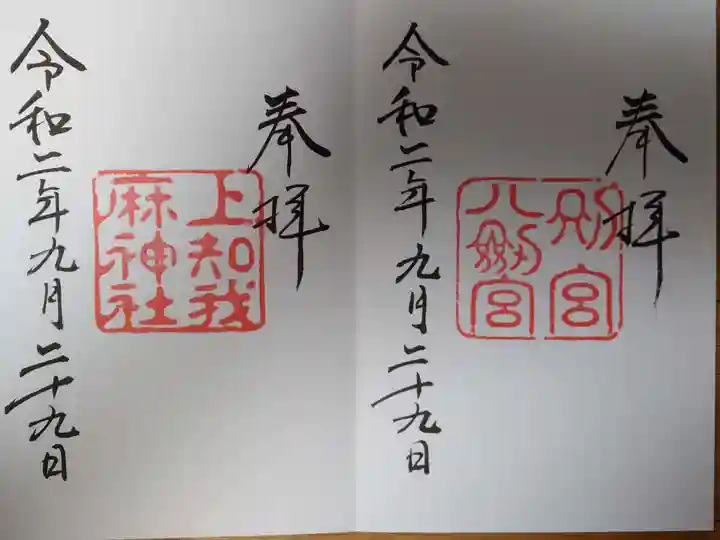 奉拝
別宮
八剱宮
令和二年九月二十九日
奉拝
上知我
麻神社
令和二年九月二十九日